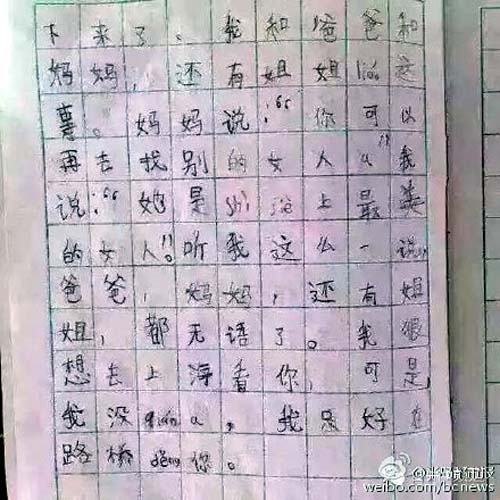 下来了。我和爸爸和
妈妈,还有姐姐liáo这
事。妈妈说:“你可以
再去找别的女人a”我
说:“她是shì 上最美
的女人!”听我这么一说,
爸爸,妈妈,还有姐
姐,都无语了。我狠
想去上海看你,可是,
我没qián a,我只好在
路桥děng你。
@半岛晨报
weibo.com/bcnews